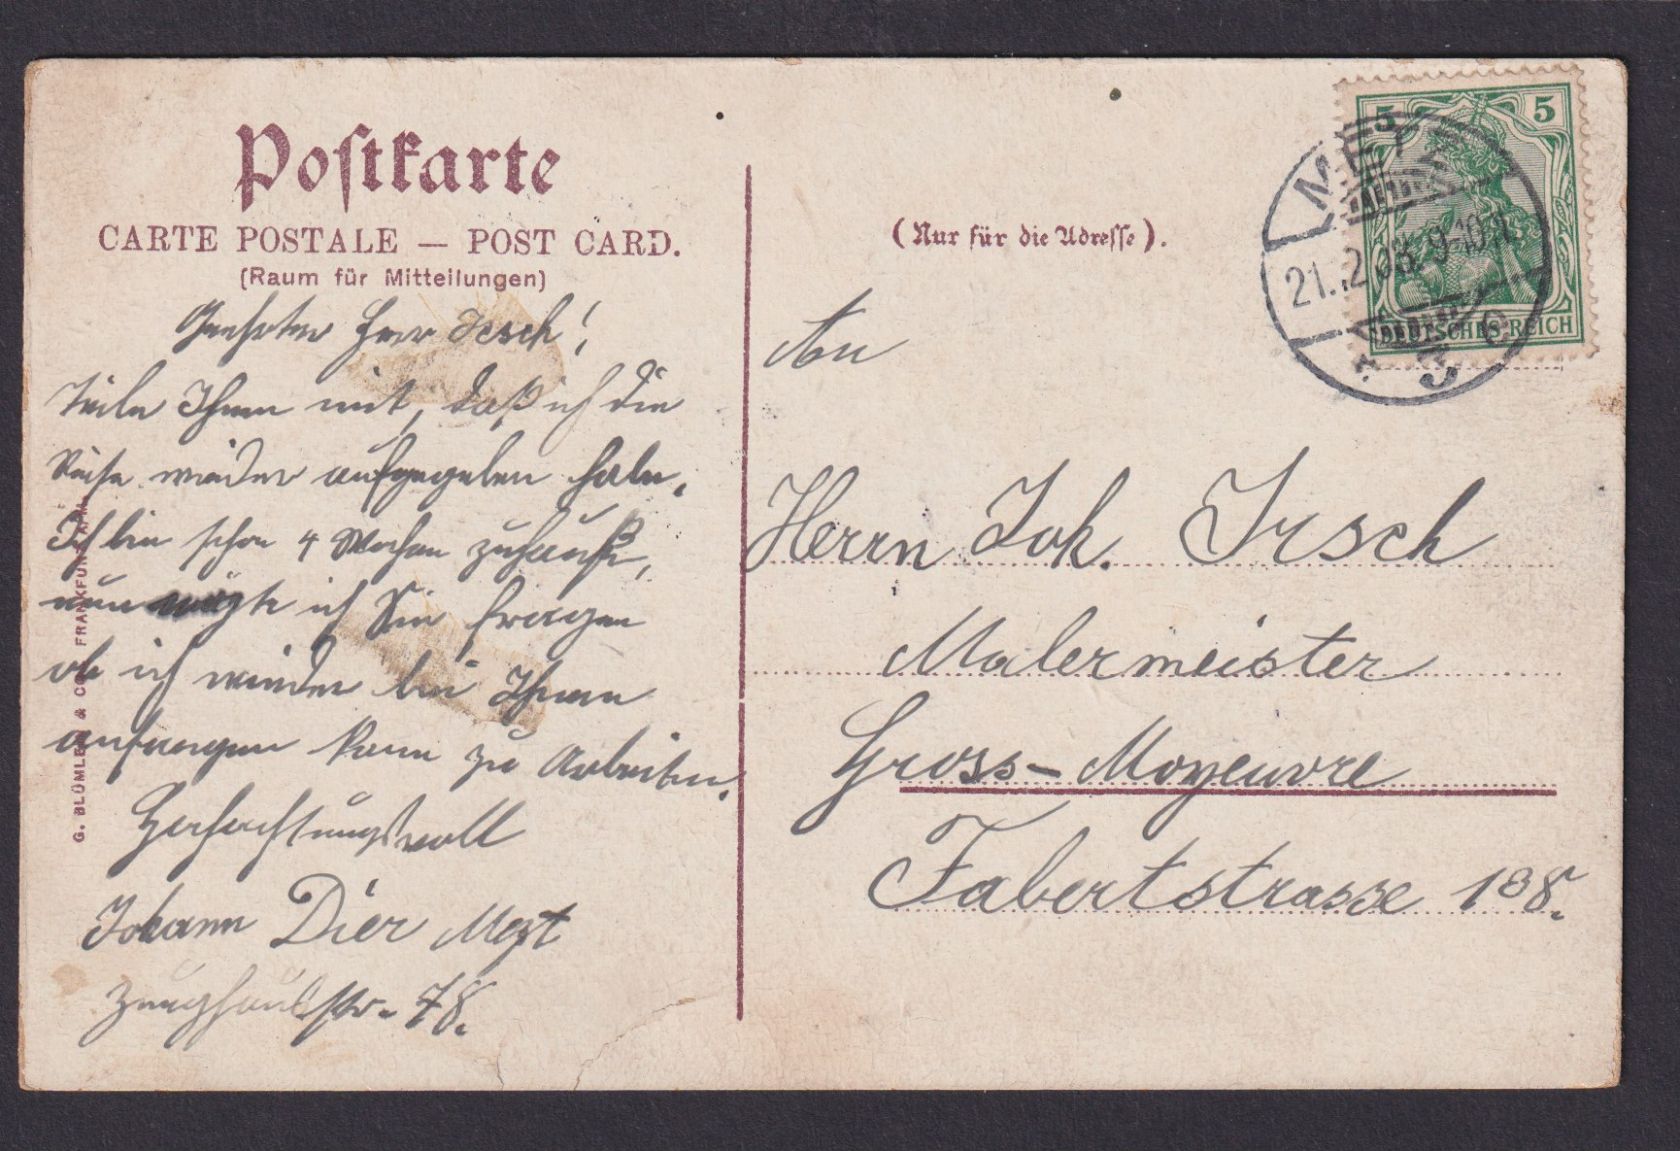 Postkarte
CARTE POSTALE — POST CARD.
(Raum für Mitteilungen)
Geehrter Herr Irsch!
Teile Ihnen mit, daß ich die
Reise wieder aufgegeben habe.
Ich bin schon 4 Wochen zuhause,
nun mögte ich Sie fragen
ob ich wieder bei Ihnen
anfangen kann zu Arbeiten.
Hochachtungsvoll
Johann Dier Mezt
Zeughausstr. 78.
G. BLÜMLEIN & Co. FRANKFURT A/M.
(Nur für die Adresse).
5 5
DEUTSCHES REICH
METZ
21.2.08. 9-10
An
Herrn Joh. Irsch
Malermeister
Gross-Moyeuvre
Fabertstrasse 138.